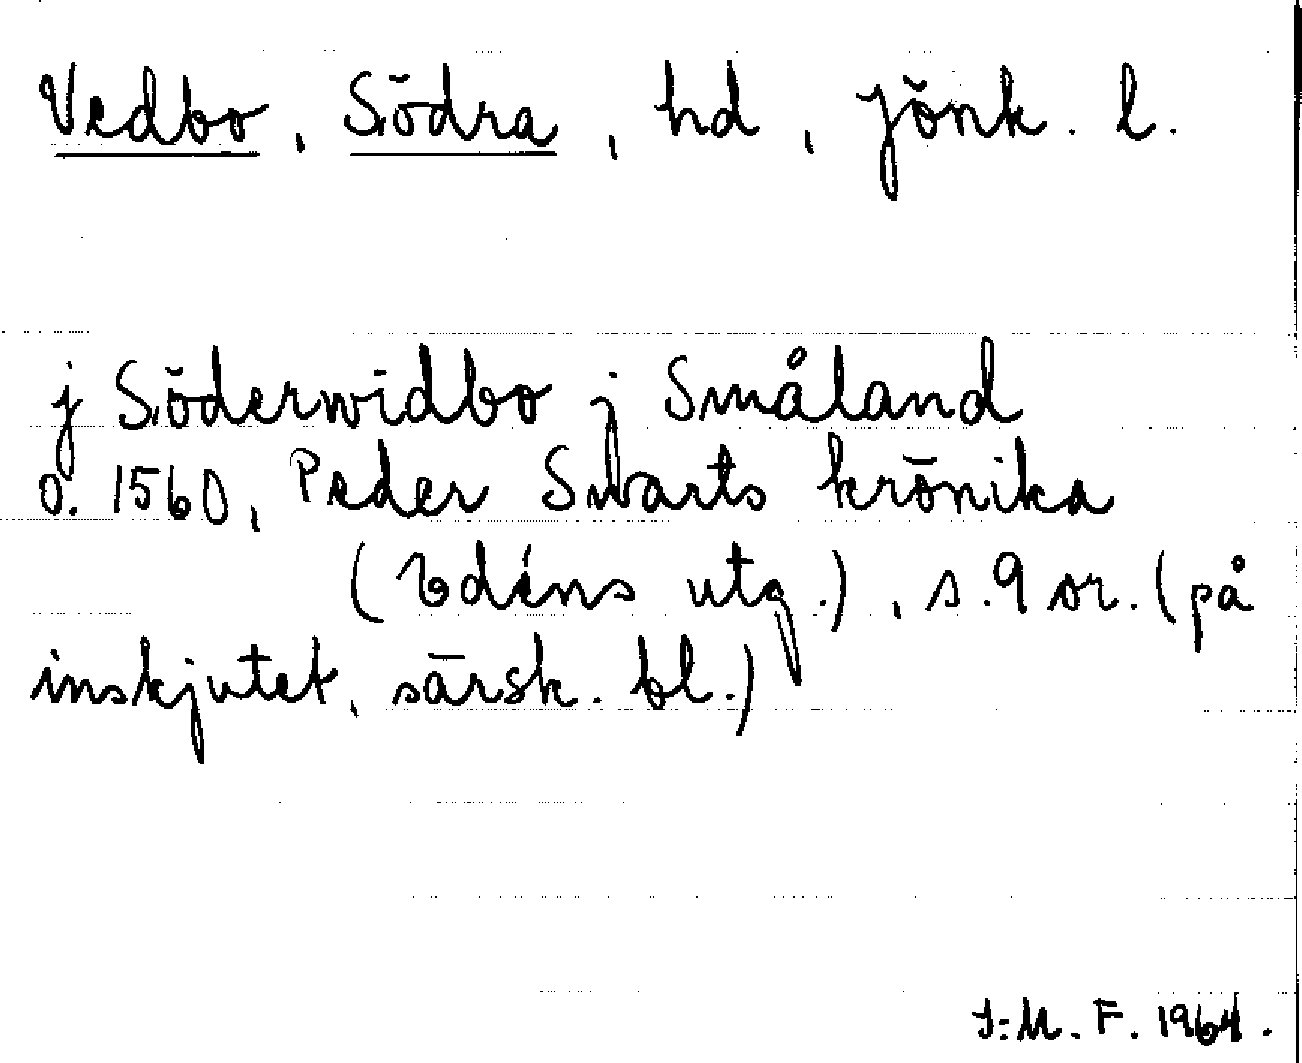 Vedbo, Södra, hd, Jönk. l.
j Söderwidbo j Småland
o. 1560, Peder Swarts krönika
(Edéns utg.), s. 9 or. (på
inskjutet, särsk. bl.)
I.M.F. 1964.